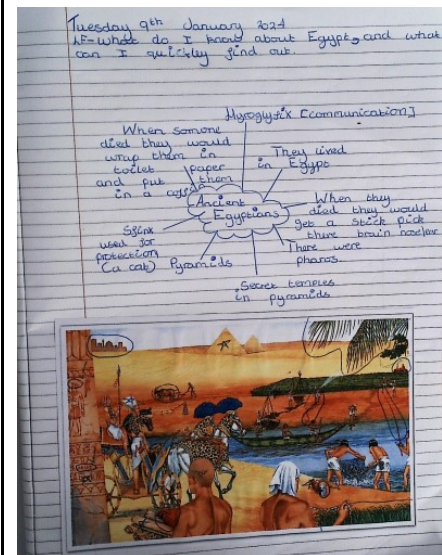 Tuesday 9th January 2024
LF-What do I know about Egypt, and what
can I quickley find out.
Hyroglyfix [communication]
When somone
died they would
wrap them in
toilet paper
and put them
in a coffin
They lived
in Egypt
Ancient
Egyptians
When they
died they would
get a stick pick
there brain
Sfink
used for
protection
(a cat)
Pyramids
There were
pharos.
Secret temples
in pyramids